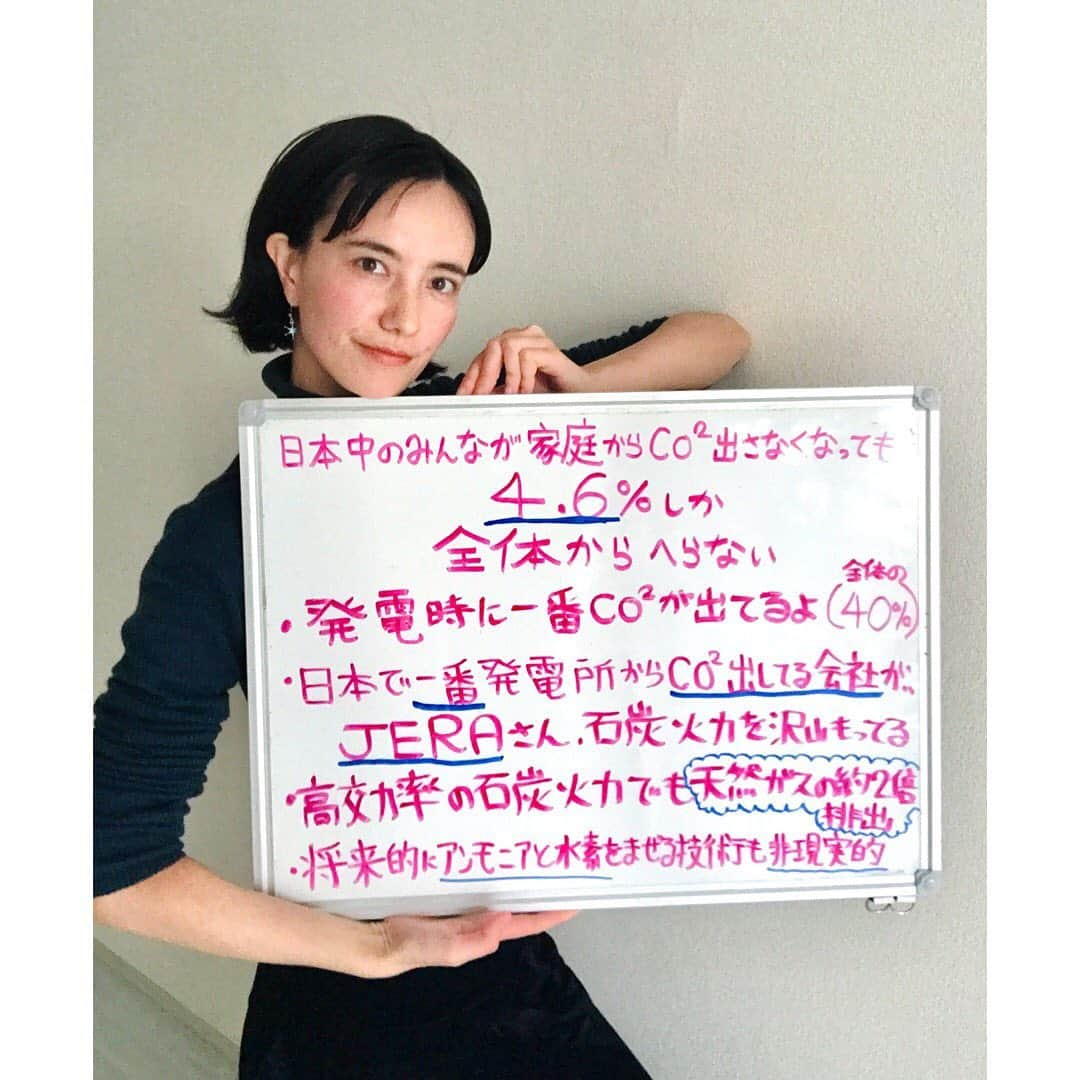 日本中のみんなが家庭からCO²出さなくなっても
4.6%しか
全体からへらない
・発電時に一番CO²が出てるよ(全体の40%)
・日本で一番発電所からCO²出してる会社が、
JERAさん、石炭火力を沢山もってる
・高効率の石炭火力でも天然ガスの約2倍
排出。
・将来的にアンモニアと水素をまぜる技術も非現実的